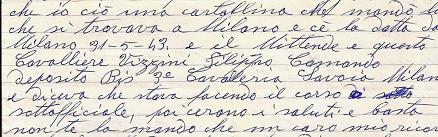 che io ciò una cartollina che mando
che si trovava a Milano e cè la datta
Milano 31-5-43. e il Mittende e questo
Cavalliere Vizzini Filippo Comando
deposito Bis 3e Cavalleria Savoia Milan
e diceva che stava facendo il corso di
sottofficiale, poi cerano i saluti e basta
non te la mando che un caro mio